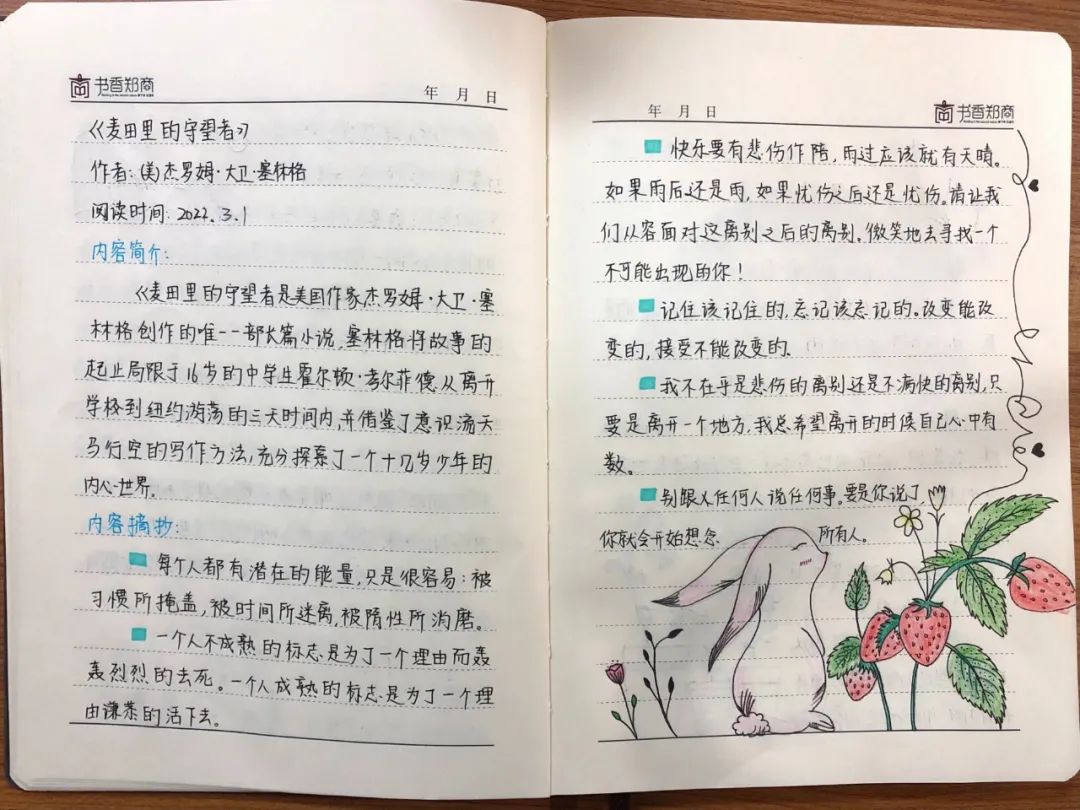 书香郑商
年 月 日
《麦田里的守望者》
作者:(美)杰罗姆·大卫·塞林格
阅读时间:2022.3.1
内容简介:
《麦田里的守望者是美国作家杰罗姆·大卫·塞
林格创作的唯一一部长篇小说,塞林格将故事的
起止局限于16岁的中学生霍尔顿·考尔菲德从离开
学校到纽约游荡的三天时间内,并借鉴了意识流天
马行空的写作方法,充分探索了一个十几岁少年的
内心世界.
内容摘抄:
每个人都有潜在的能量,只是很容易:被
习惯所掩盖,被时间所迷离,被惰性所消磨。
一个人不成熟的标志是为了一个理由而轰
轰烈烈的去死。一个人成熟的标志是为了一个理
由谦恭的活下去。
年 月 日
书香郑商
快乐要有悲伤作陪,雨过应该就有天晴。
如果雨后还是雨,如果忧伤之后还是忧伤。请让我
们从容面对这离别之后的离别。微笑地去寻找一个
不可能出现的你!
记住该记住的,忘记该忘记的。改变能改
变的,接受不能改变的.
我不在乎是悲伤的离别还是不痛快的离别,只
要是离开一个地方,我总希望离开的时候自己心中有
数。
别跟人任何人说任何事。要是你说了
你就会开始想念 所有人。